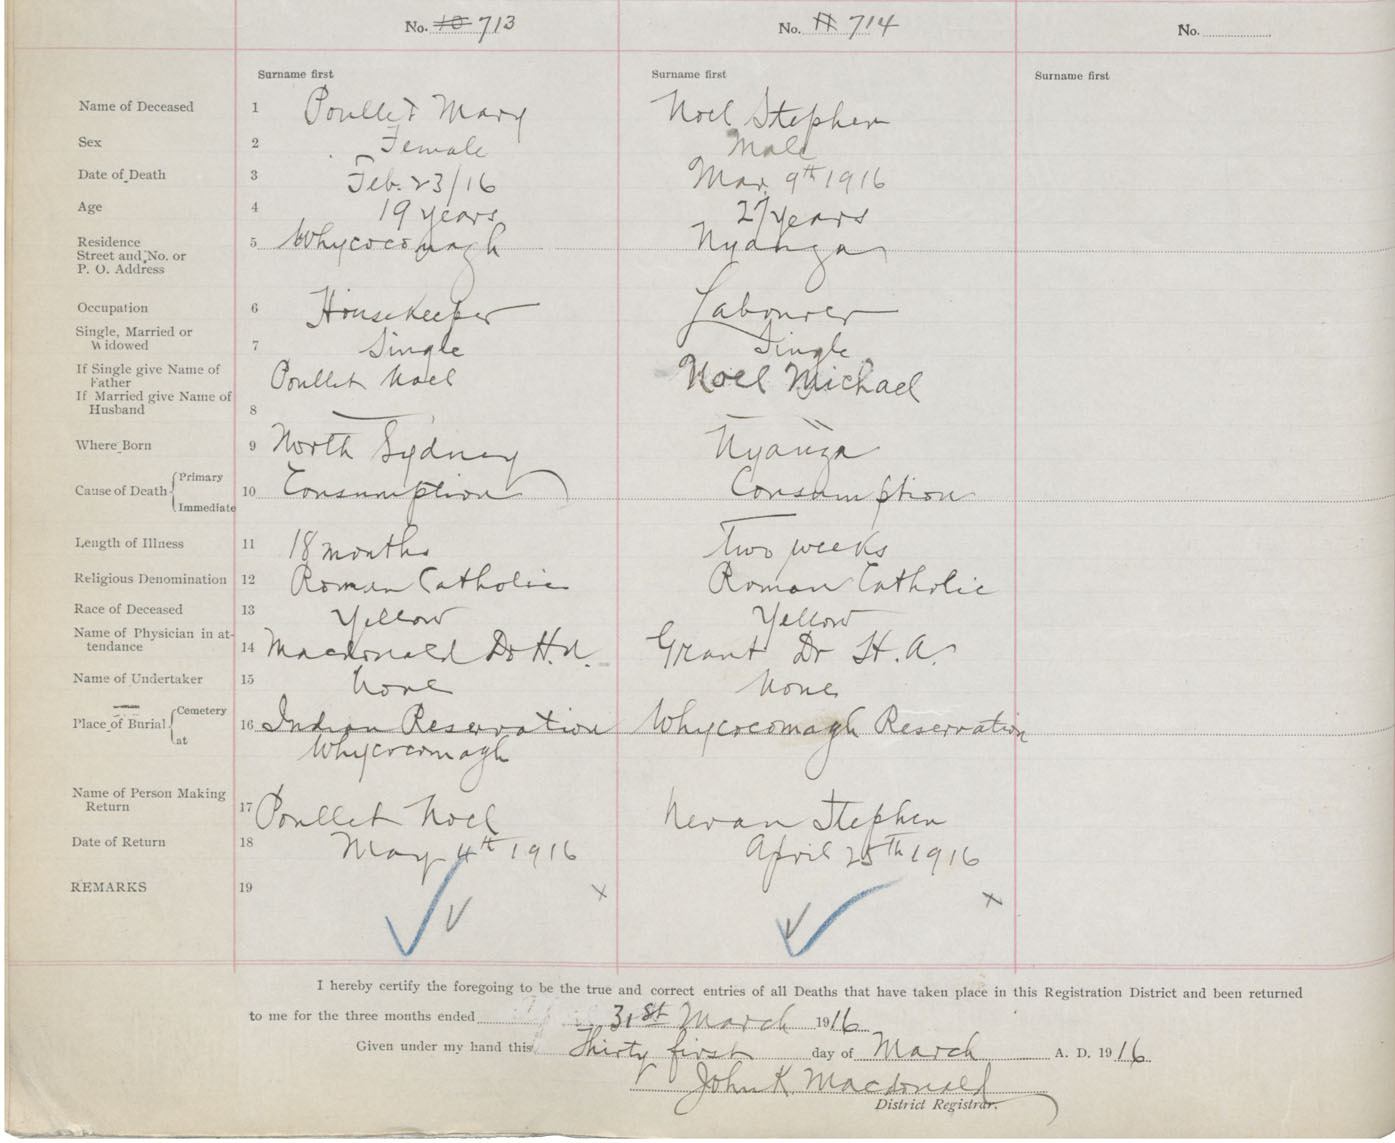 No. 10 713 No. 11 714 No.
Surname first Surname first Surname first
Name of Deceased 1 Poullet Mary Noel Stephen
Sex 2 Female Male
Date of Death 3 Feb. 23/16 Mar. 9th 1916
Age 4 19 years 27 years
Residence 5 Whycocomagh Nyanza
Street and No. or
P. O. Address
Occupation 6 Housekeeper Labourer
Single, Married or
Widowed 7 Single Single
If Single give Name of
Father Poullet Noel Noel Michael
If Married give Name of
Husband 8
Where Born 9 North Sydney Nyanza
Cause of Death Primary 10 Consumption Consumption
Immediate
Length of Illness 11 18 months Two weeks
Religious Denomination 12 Roman Catholic Roman Catholic
Race of Deceased 13 Yellow Yellow
Name of Physician in at-
tendance 14 Macdonald Dr H.N. Grant Dr H.A.
Name of Undertaker 15 None None
Place of Burial Cemetery 16 Indian Reservation Whycocomagh Reservation
at Whycocomagh
Name of Person Making
Return 17 Poullet Noel Nevan Stephen
Date of Return 18 May 4th 1916 April 25th 1916
REMARKS 19 x x
I hereby certify the foregoing to be the true and correct entries of all Deaths that have taken place in this Registration District and been returned
to me for the three months ended 31st March 1916
Given under my hand this Thirty first day of March A. D. 1916
John K. Macdonald
District Registrar.